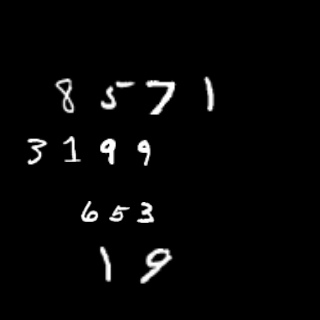 8571
3199
653
19